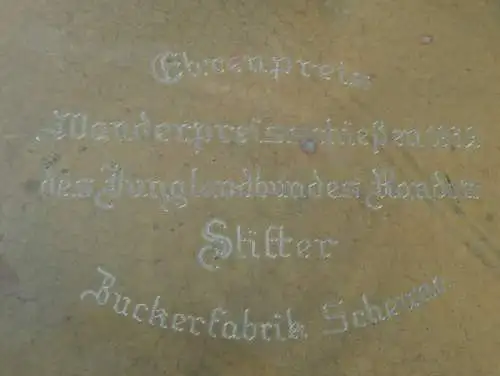 Ehrenpreis
Wanderpreisschießen 1932
des Junglandbundes
Stifter
Zuckerfabrik